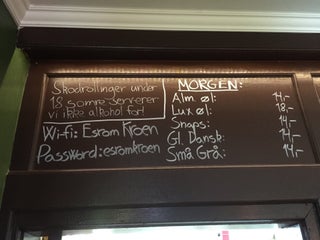 Skodrollinger under
18 somre serverer
vi ikke alkohol for!
Wi-fi: Esrom Kroen
Password: esromkroen
MORGEN:
Alm. øl: 14,-
Lux øl: 18,-
Snaps: 14,-
Gl. Dansk: 14,-
Små Grå: 14,-